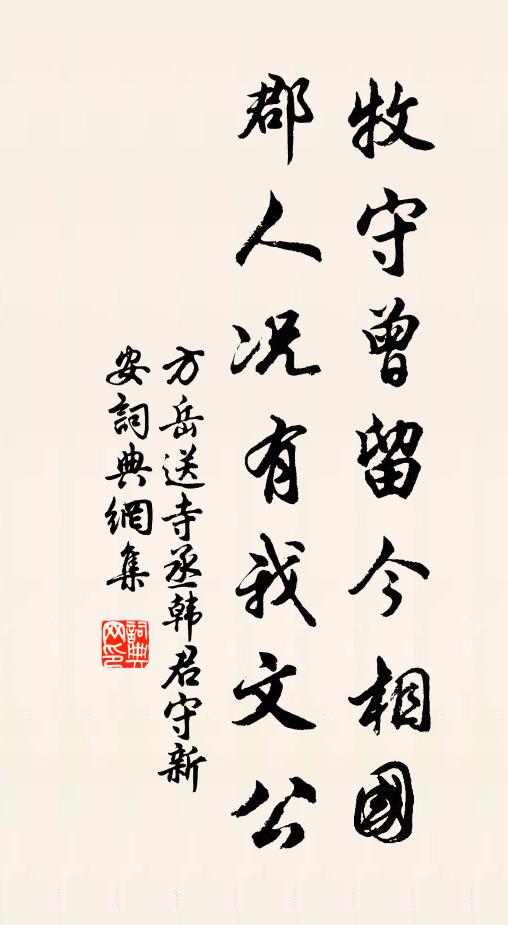 牧守曾留今相國
郡人况有我文公
方岳送寺丞韩君守新
安詞典網集
詞典
网印